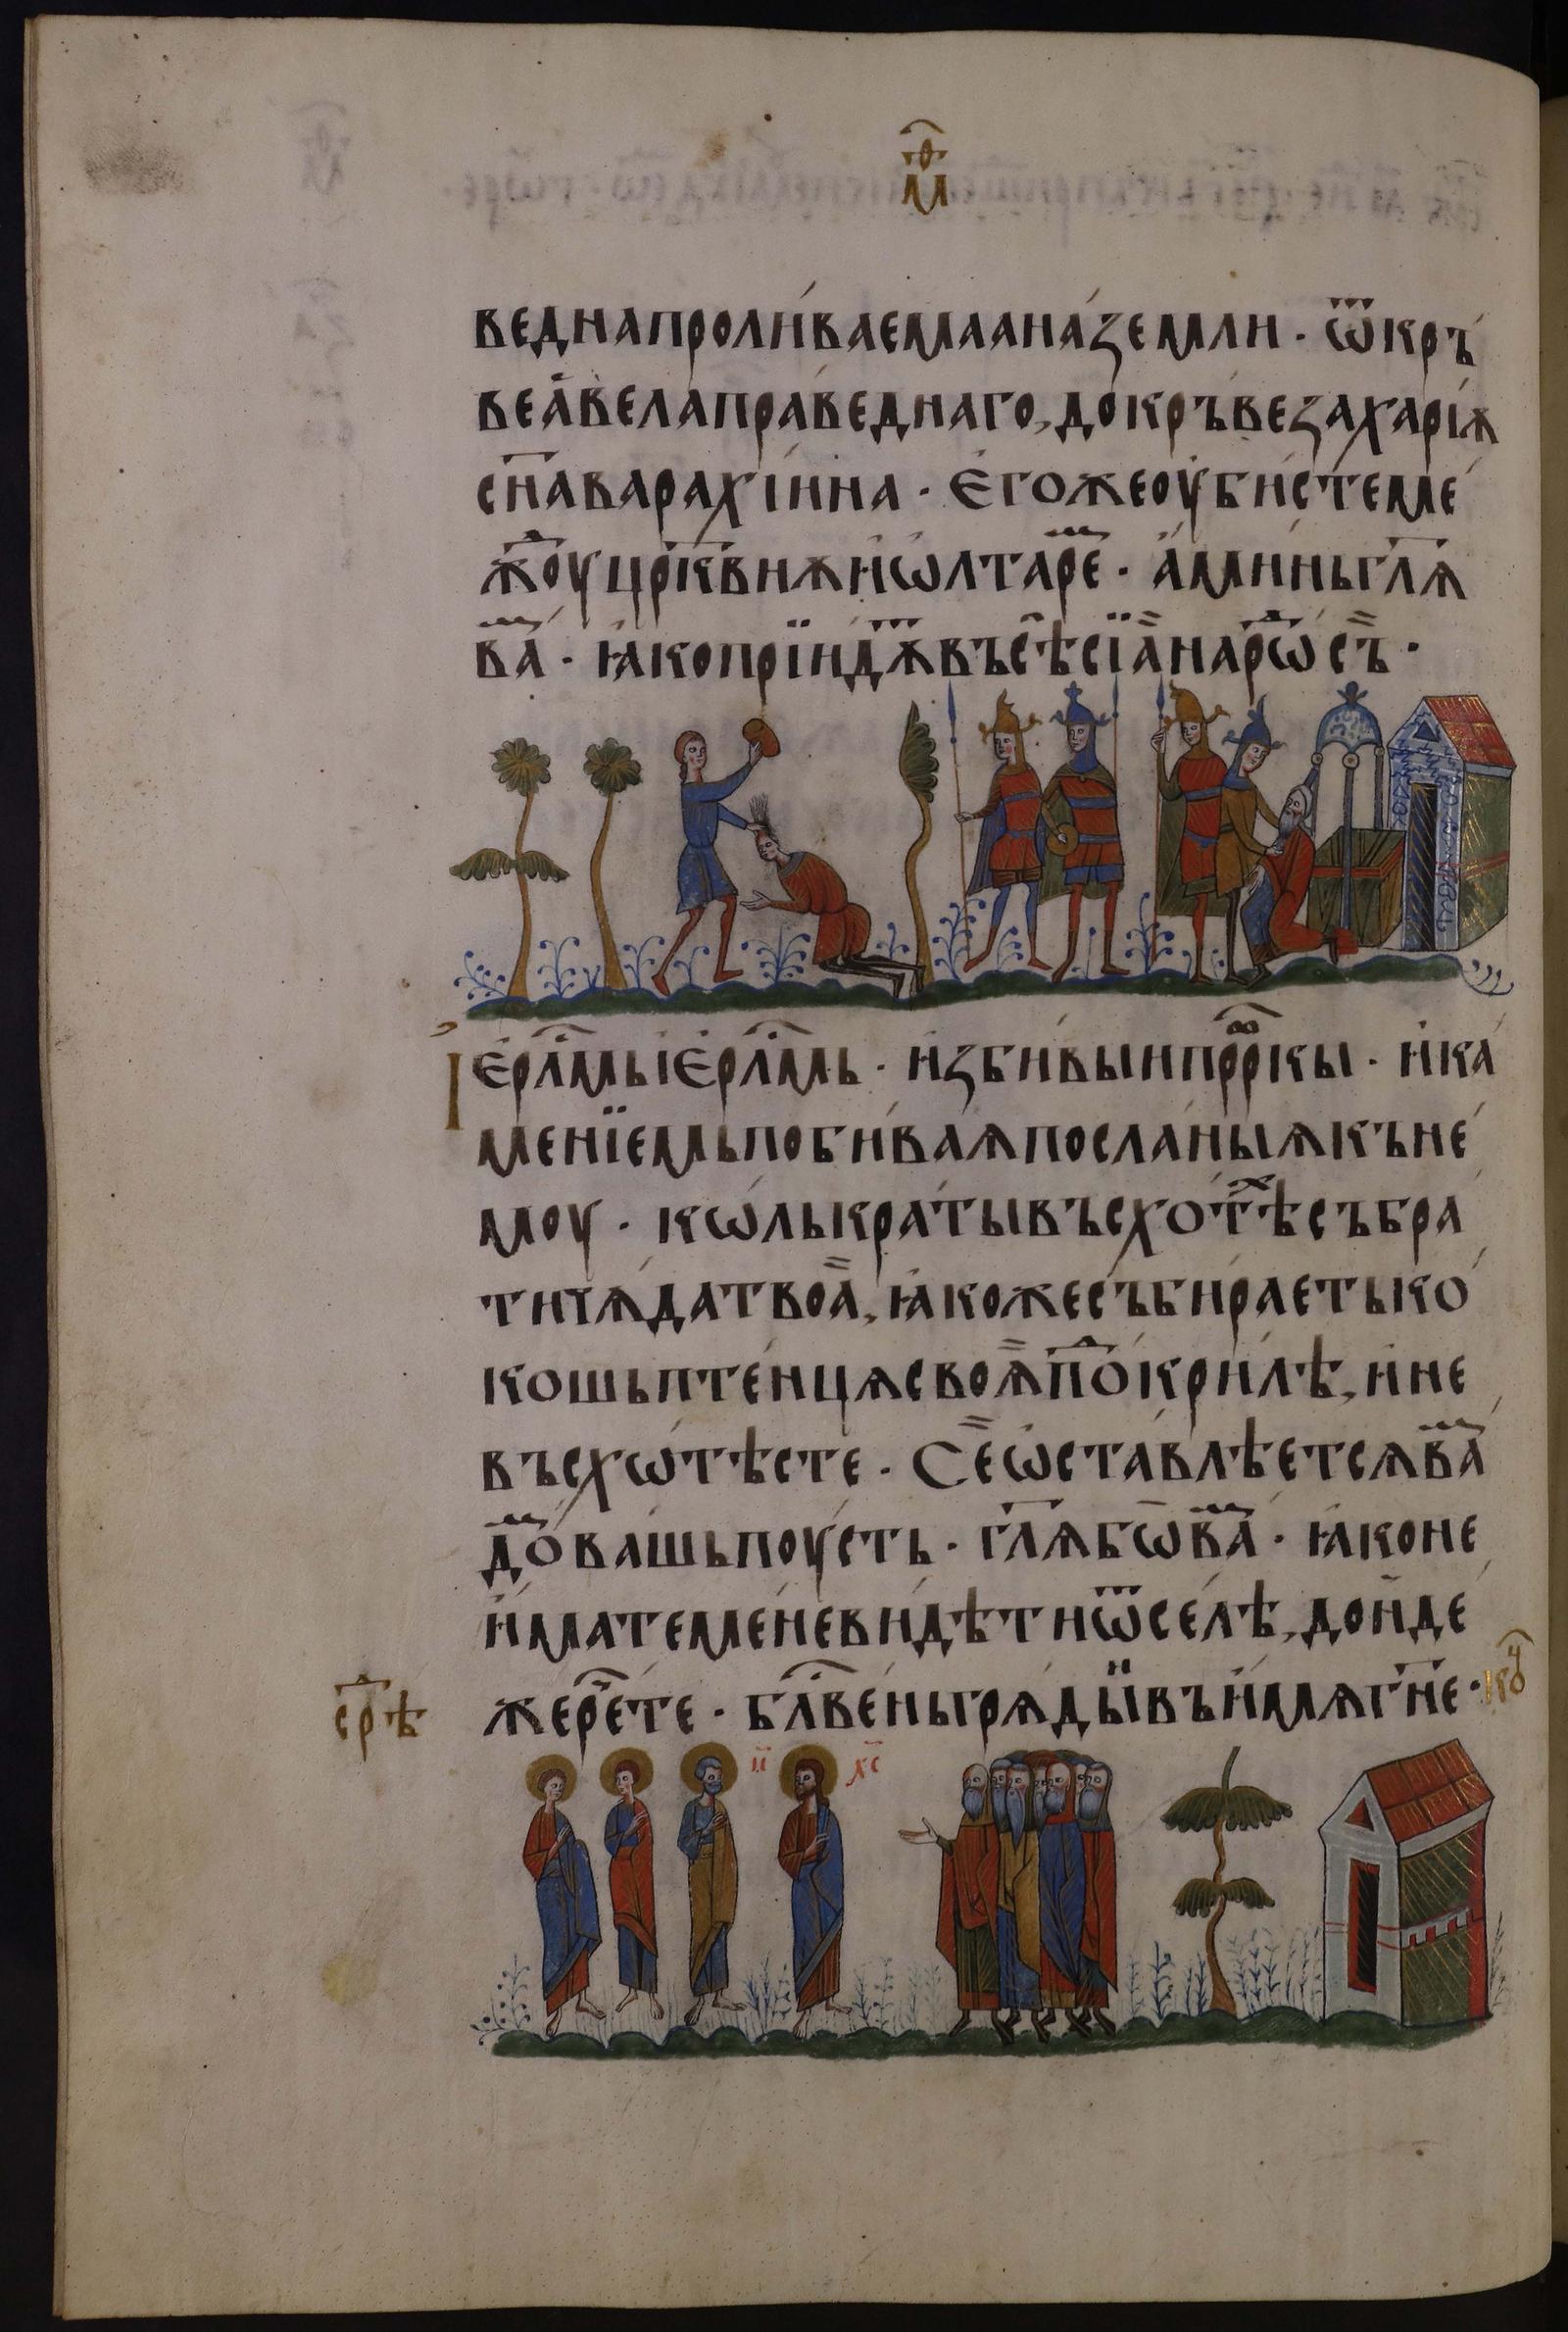 м︮ѳ︯
веднапроли́ваемаана́земли · ѿкръ́
веа҆́велапра́веднаго, докръ́везаха́рїѧ
сн҃авара́хїина · є҆го́жеоу҆би́стемє
жⷣоуцр҃квиѫи҆ѡлтаⷬ҇е́ · а҆ми́ньгл҃ѧ
ваⷨ · ꙗ҆́копрїи́дѫⷮвъсѣ̑сїа҆̀наⷬ҇ѡⷣсъ̀ ·
Іє҆рⷭ҇лмьіє҆рⷭ҇лмь · и҆зби́выипрⷪ҇ркы · и҆ка́
ме́нїемьпоби́ваѧпосла́ныѧкъне́
моу · кѡ́лькра́тывъсхотѣⷯсъбра́
тичѧ́датвоа̀, ꙗ҆́кожесъби́раетько́
кошьпте́нцѧсвоѧ̀поⷣкри́лѣ, и҆не
въсхѡ́тѣсте · Сѐѡ҆ста́влѣетсѧваⷨ
доⷨва́шьпоу́сть · гл҃ѧбѡваⷨ · ꙗ҆́коне
и҆́матемене́ви́дѣтиѿсе́лѣ, до́нде
жерⷱ҇е́те · блⷭ҇ве́ньгрѧды́ивъи́мѧгн҃е · коⷰ҇
срⷣѣ
і҃с х҃с